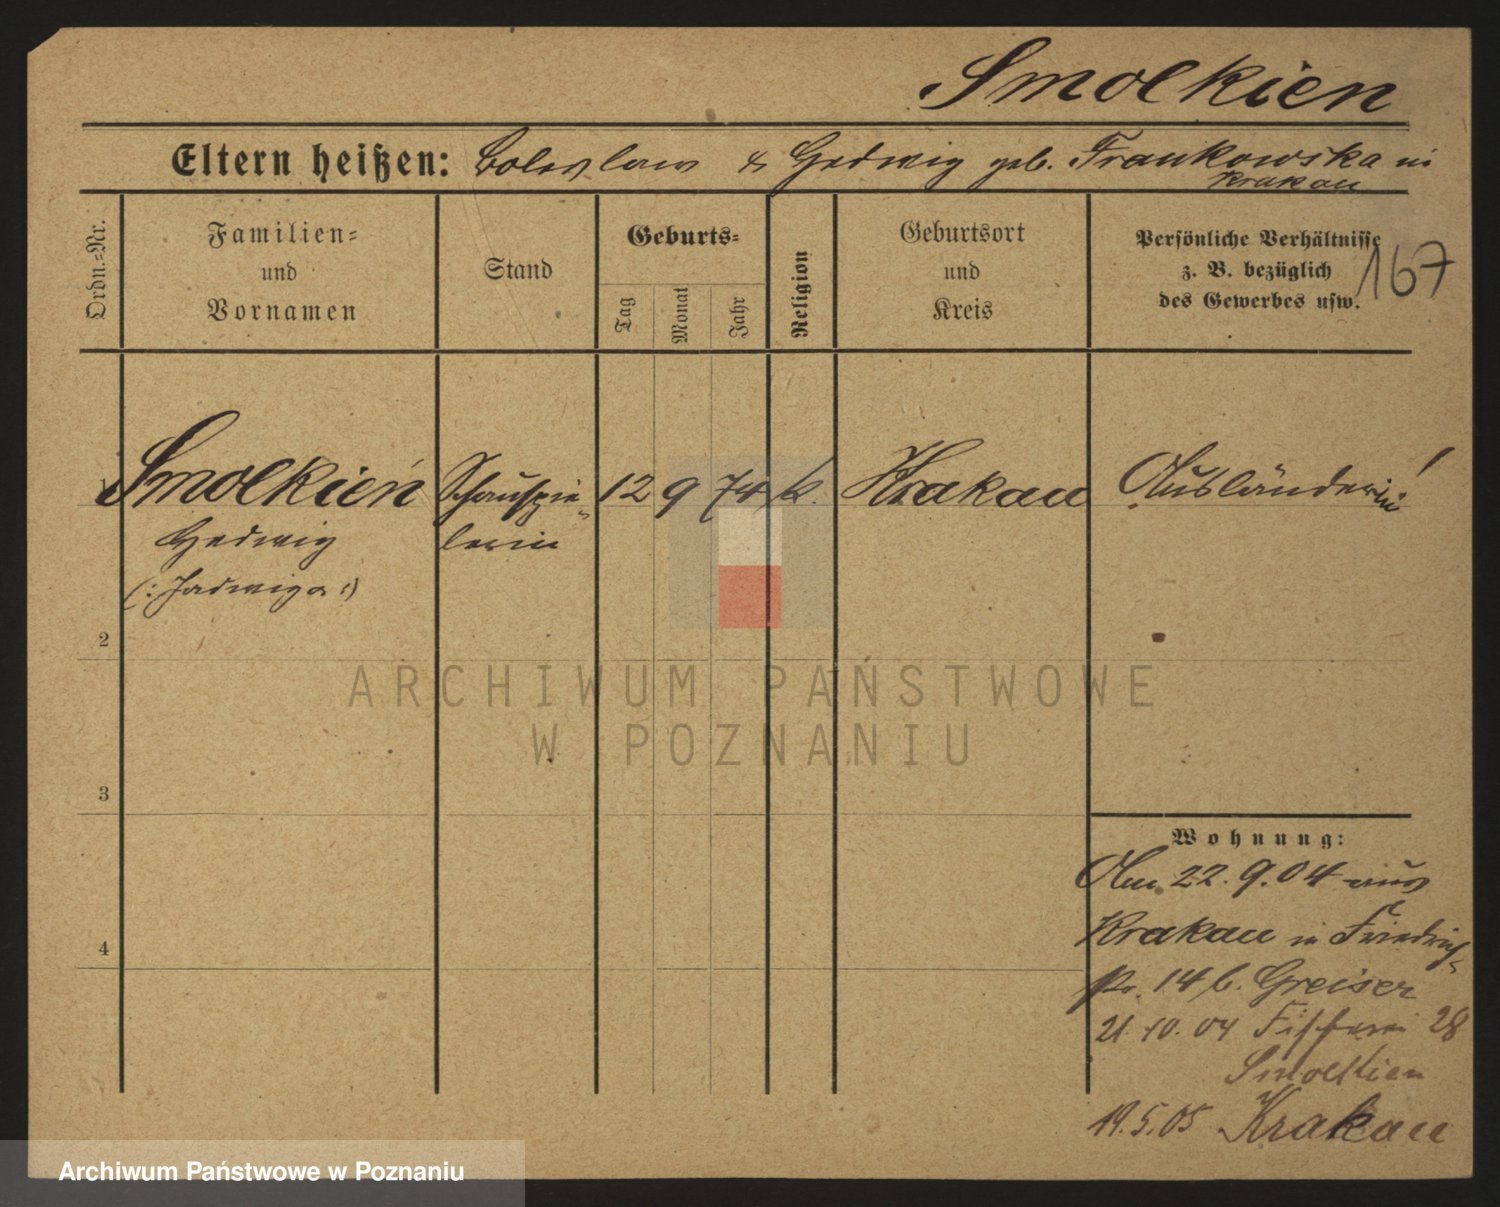 Smolkien
Eltern heißen: Boleslaw & Hedwig geb. Frankowska in
Krakau
Ordn.=Nr.
Familien=
und
Vornamen
Stand
Geburts=
Tag
Monat
Jahr
Religion
Geburtsort
und
Kreis
Persönliche Verhältnisse
z. B. bezüglich
des Gewerbes usw.
167
1 Smolkień Schauspie= 12 9 74 k. Krakau Ausländerin!
Hedwig lerin
(: Jadwiga :)
2
3
4
ARCHIWUM PAŃSTWOWE
W POZNANIU
Wohnung:
Am 22. 9. 04 aus
Krakau in Friedrich=
str. 14 b. Greiser
21. 10. 04 Fischerei 28
Smolkien
19. 5. 05 Krakau
Archiwum Państwowe w Poznaniu